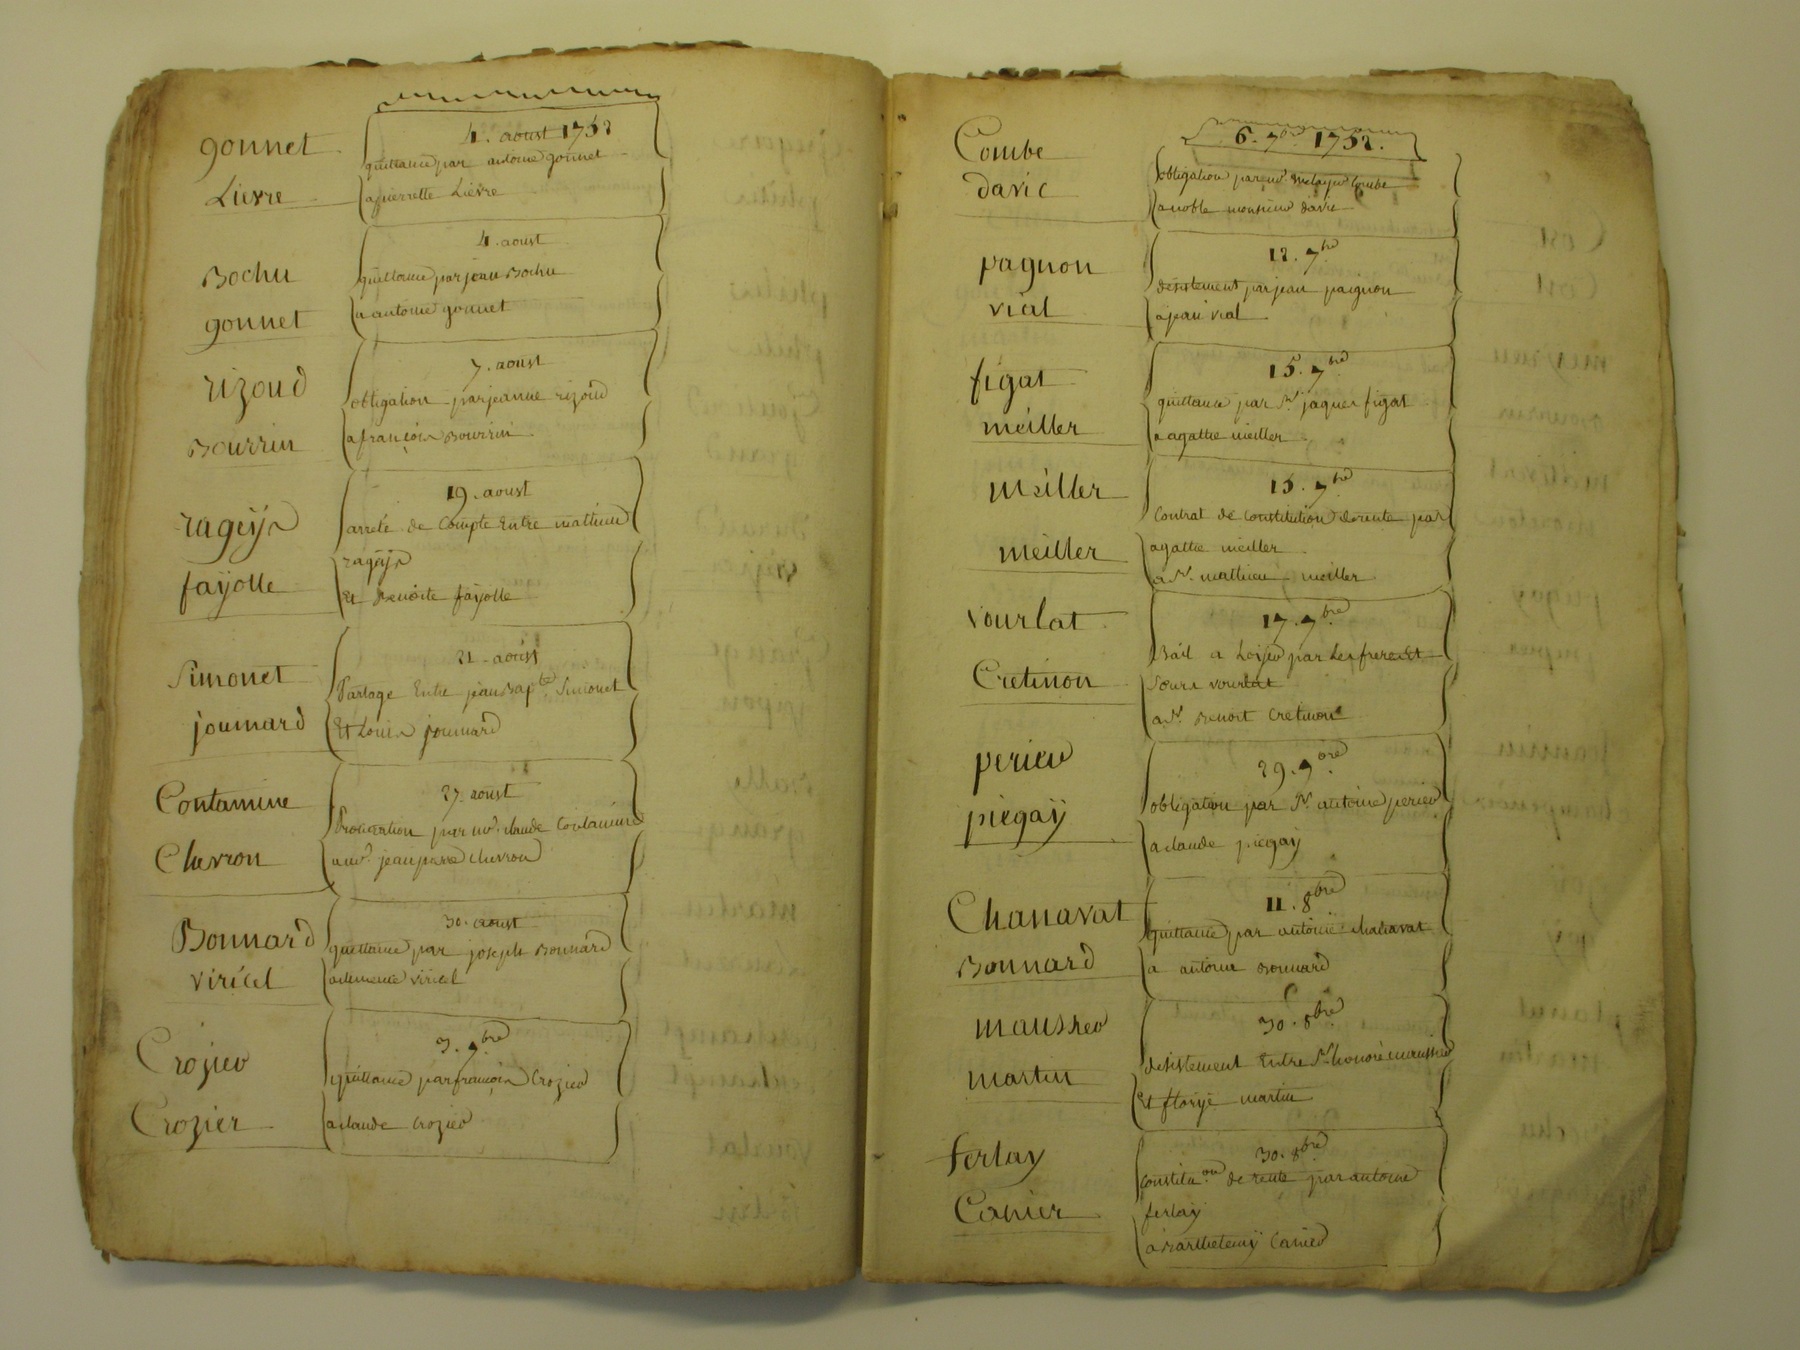 gonnet
Lievre
4. aoust 1752
quittance par antoine gonnet
a pierrette Lievre
Bochu
gonnet
4. aoust
quittance par jean Bochu
a antoine gonnet
rizoud
Bourrin
7. aoust
obligation par jeanne rizoud
a françois Bourrin
rageÿs
faÿolle
19. aoust
arreté de Compte Entre mathieu
rageÿs
Et Benoite faÿolle
Simonet
joumard
21. aoust
Partage Entre jean Bapte Simonet
Et Louis joumard
Contamine
Chevron
27. aoust
Procuration par mr. claude Contamine
a mr. jean pierre chevron
Bonnard
viricel
30. aoust
quittance par joseph Bonnard
a clemence viricel
Crozier
Crozier
3. 7bre
quittance par françois Crozier
a claude Crozier
Combe
davic
6. 7bre 1752.
obligation par mr Combe
a noble monsieur davic
pagnon
vial
12. 7bre
desistement par jean paignon
a jean vial
figat
meiller
15. 7bre
quittance par Sr. jaques figat
a agathe meiller
Meiller
meiller
15. 7bre
Contrat de Constitution de rente par
agathe meiller
a Sr. mathieu meiller
vourlat
Cretinon
17. 7bre
Bail a Loyer par Les freres et
Sœurs vourlat
a Sr. Benoit Cretinon
perieu
piegaÿ
29. 7bre
obligation par Sr. antoine perieu
a claude piegaÿ
Chanavat
Bonnard
11. 8bre
quittance par antoine chanavat
a antoine Bonnard
maussier
martin
30. 8bre
desistement Entre Sr. honoré maussier
Et martin
ferlay
Canier
30. 8bre
Constituon de rente par antoine
ferlay
a Barthelemÿ Canier